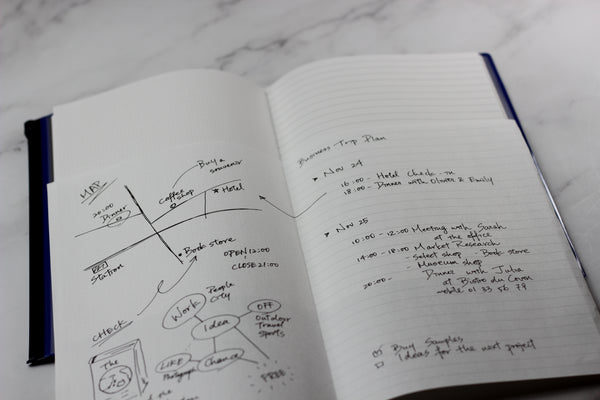 MAP
Buy a
souvenir
Coffee
shop
Hotel
20:00
Dinner
Book store
OPEN 12:00
CLOSE 21:00
Station
CHECK
The
Work
People
City
OFF
Outdoor
Travel
Sports
Idea
LIKE
Photograph
Chance
FREE
Business Trip Plan
Nov 24
16:00 - Hotel Check-in
18:00 - Dinner with Oliver & Emily
Nov 25
10:00 - 12:00 Meeting with Sarah
at the office
14:00 - 18:00 Market Research
- Select shop - Book store
- Museum shop
20:00 - Dinner with Julia
at Bistro du
01 33 56 79
Buy Samples
Ideas for the next project